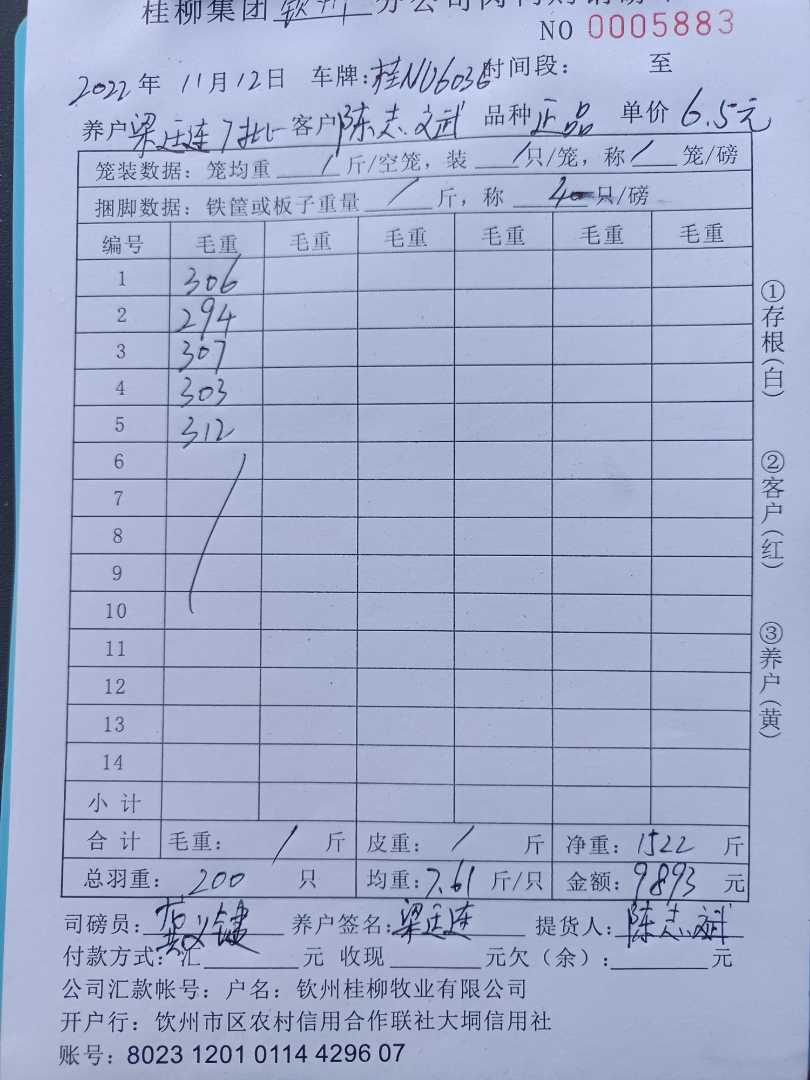 桂柳集团 钦州 分公司
NO 0005883
2022年 11月12日 车牌:桂NU6036 时间段: 至
养户梁廷连7批 客户陈志斌 品种正品 单价 6.5元
笼装数据: 笼均重 / 斤/空笼, 装 / 只/笼, 称 / 笼/磅
捆脚数据: 铁筐或板子重量 / 斤, 称 40 只/磅
编号 毛重 毛重 毛重 毛重 毛重 毛重
1 306
2 294
3 307
4 303
5 312
6
7
8
9
10
11
12
13
14
小 计
合 计 毛重: / 斤 皮重: / 斤 净重: 1522 斤
总羽重: 200 只 均重: 7.61 斤/只 金额: 9893 元
司磅员: 养户签名: 梁廷连 提货人: 陈志斌
付款方式: 汇 元 收现 元欠(余): 元
公司汇款帐号: 户名: 钦州桂柳牧业有限公司
开户行: 钦州市区农村信用合作联社大垌信用社
账号: 8023 1201 0114 4296 07
①存根(白)
②客户(红)
③养户(黄)